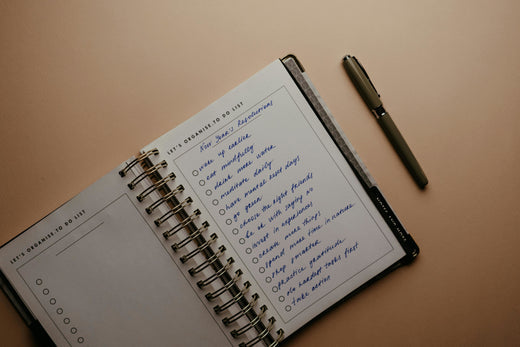 LET'S ORGANISE.TO DO LIST
LET'S ORGANISE.TO DO LIST
New Year's Resolutions
wake up earlier
eat mindfully
drink more water
meditate daily
have more rest days
go green
choose the right friends
be ok with saying no
invest in experiences
create more things
spend more time in nature
shop smarter
practice gratitude
do hardest tasks first
take action